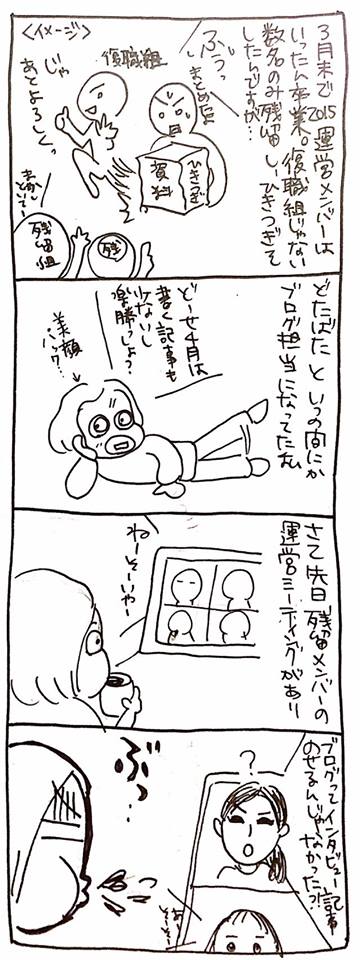 3月末で2015運営メンバーは
いったん卒業。復職組じゃない
数名のみ残留し、ひきつぎを
したんですが…
ふぅっ
まとめ役
復職組
<イメージ>
じゃ
あとよろしくっ
ひきつぎ
資料
残
残留組
どたばた と いつの間にか
ブログ担当になってた私
どーせ4月は
書く記事も
少ないし
楽勝っしょ?
美顔
パック…
さて先日残留メンバーの
運営ミーティングがあり
ねーそーいやー
ブログってインタビュー記事
のせるんじゃなかった?!
?
ぶっ…
あー
そーそー